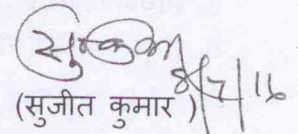 8/7/16
(सुजीत कुमार)